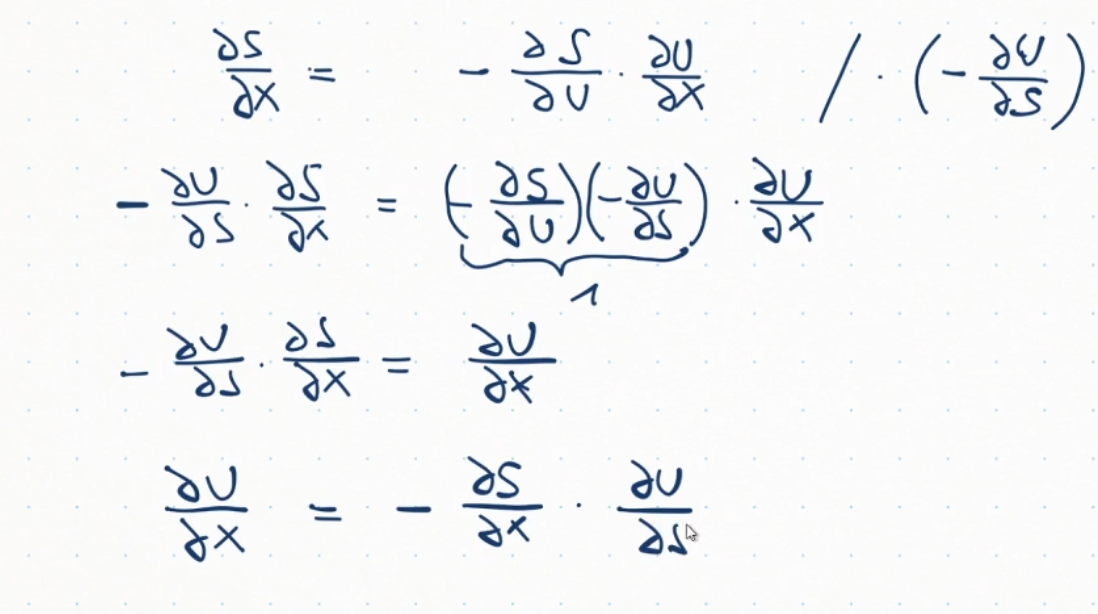 ∂S/∂X = - ∂S/∂U · ∂U/∂X / · (- ∂U/∂S)
- ∂U/∂S · ∂S/∂X = (- ∂S/∂U)(- ∂U/∂S) · ∂U/∂X
1
- ∂U/∂S · ∂S/∂X = ∂U/∂X
∂U/∂X = - ∂S/∂X · ∂U/∂S